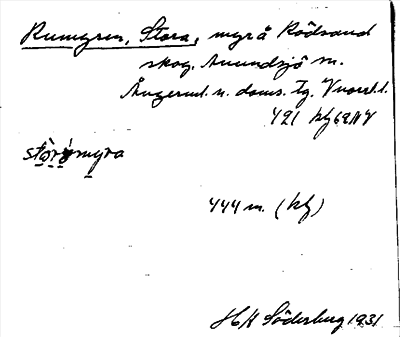 Rumyren, Stora, myr å Rödsand
skog. Anundsjö sn.
Ångerml. n. doms. Tg. Vuorsl.
421 kbl 69 NV
störúmyra
444 m. (kbl)
H K Söderberg 1931